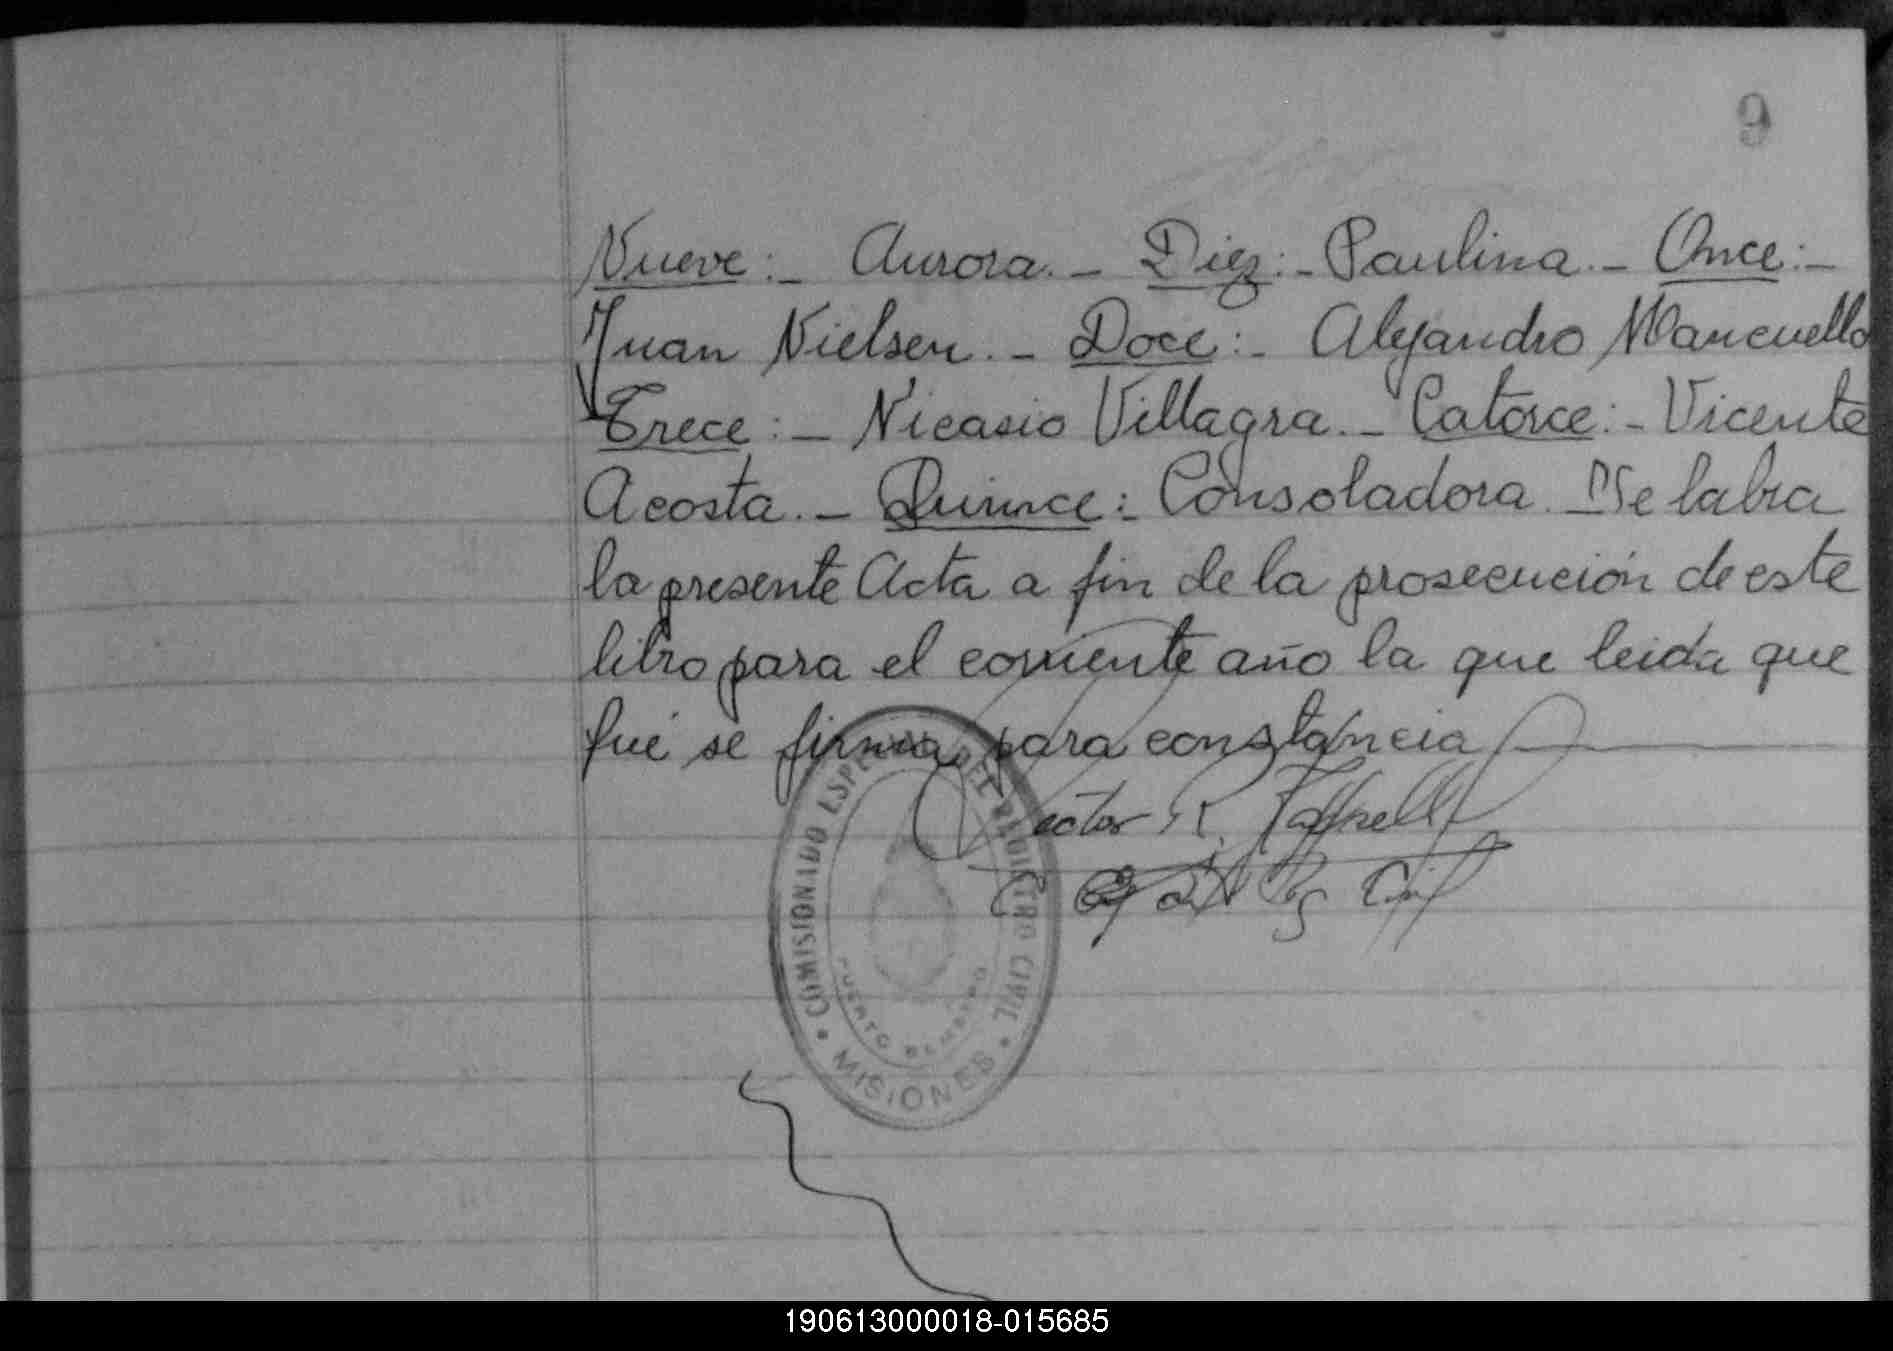 9
Nueve:_ Aurora._ Diez:_ Paulina._ Once:_
Juan Nielsen._ Doce:_ Alejandro Mancuello
Trece:_ Nicasio Villagra._ Catorce:_ Vicente
Acosta._ Quince:_ Consoladora._ Se labra
la presente Acta a fin de la prosecución de este
libro para el corriente año la que leida que
fué se firma para constancia
Hector R.
COMISIONADO ESPECIAL DEL REGISTRO CIVIL
PUERTO BEMBERG
• MISIONES •
190613000018-015685